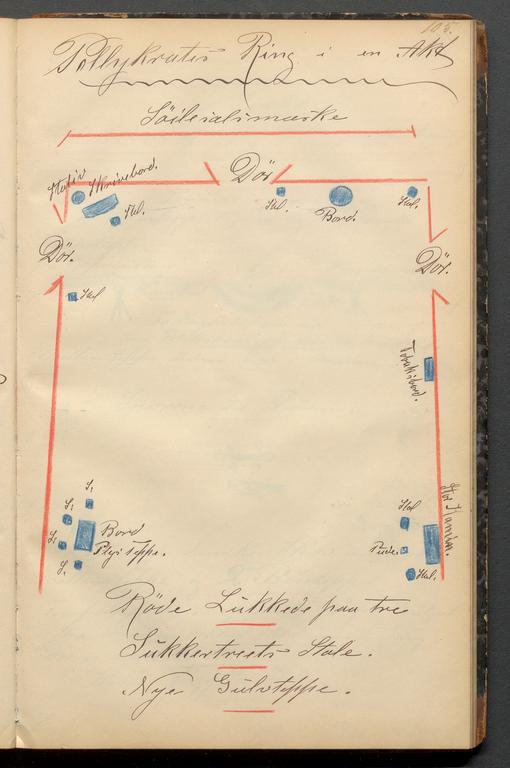 105.
Pollykrates Ring i en Akt
Söileialsmærke
Dör
Stativ
Skrivebord.
Stol.
Stol.
Bord.
Stol.
Dör.
Dör.
Stol
Toiletbord.
S.
S.
S.
S.
Bord
Plysi Teppe.
Stol
Pude.
Stol.
Stor Kamin.
Röde Lukkede paa tre
Sukkertreets Stole.
Nye Gulvteppe.